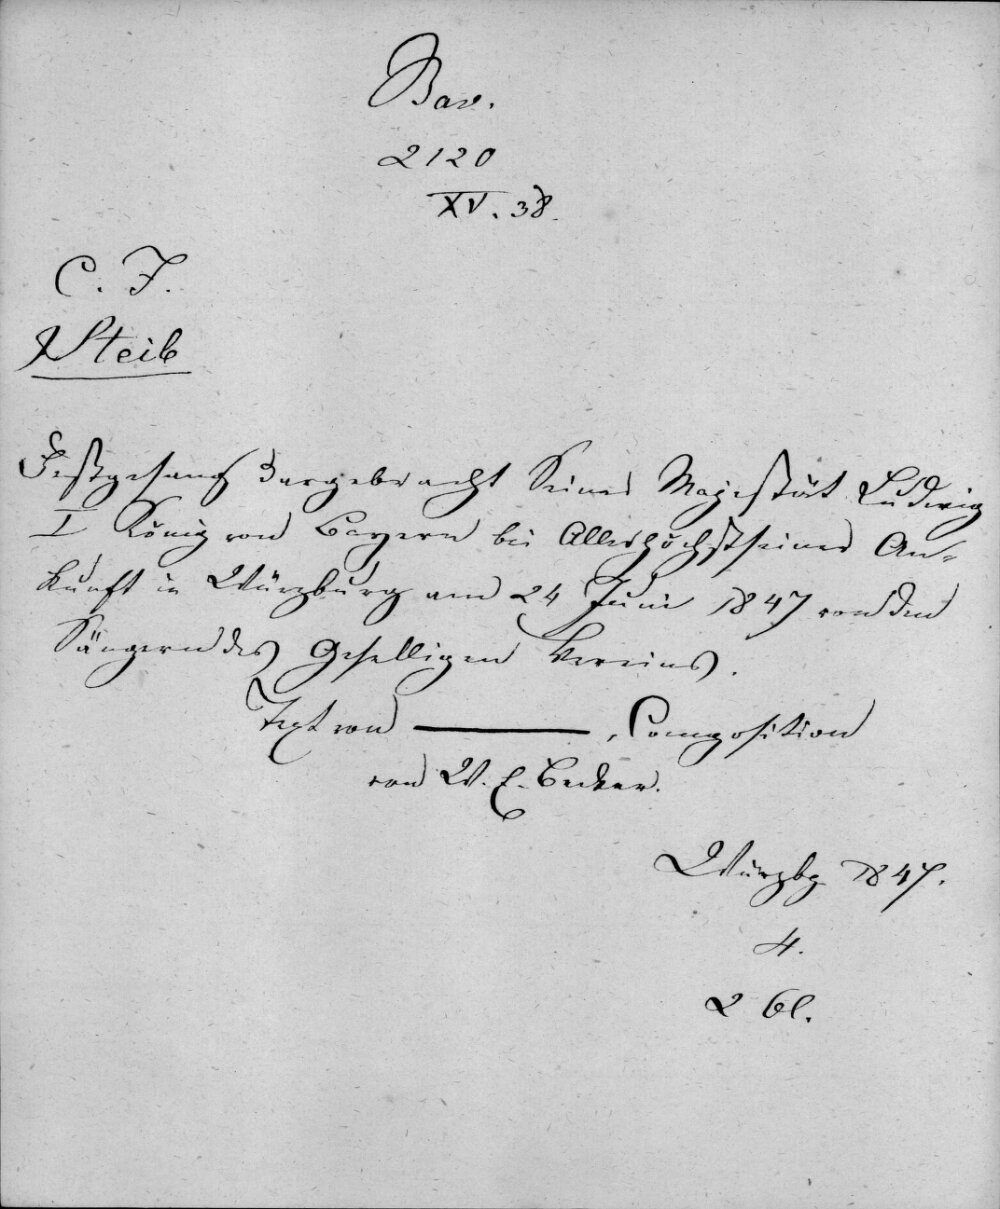 Bav.
2120
XV. 38.
C. J.
Steib
Festgesang dargebracht Seiner Majestät Ludwig
I König von Bayern bei Allerhöchstseiner An-
kunft in Würzburg am 24 Juni 1847 von den
Sängern des Geselligen Vereins.
Text von ———, Composition
von V. E. Becker.
Würzbg 1847.
4.
2 Bl.